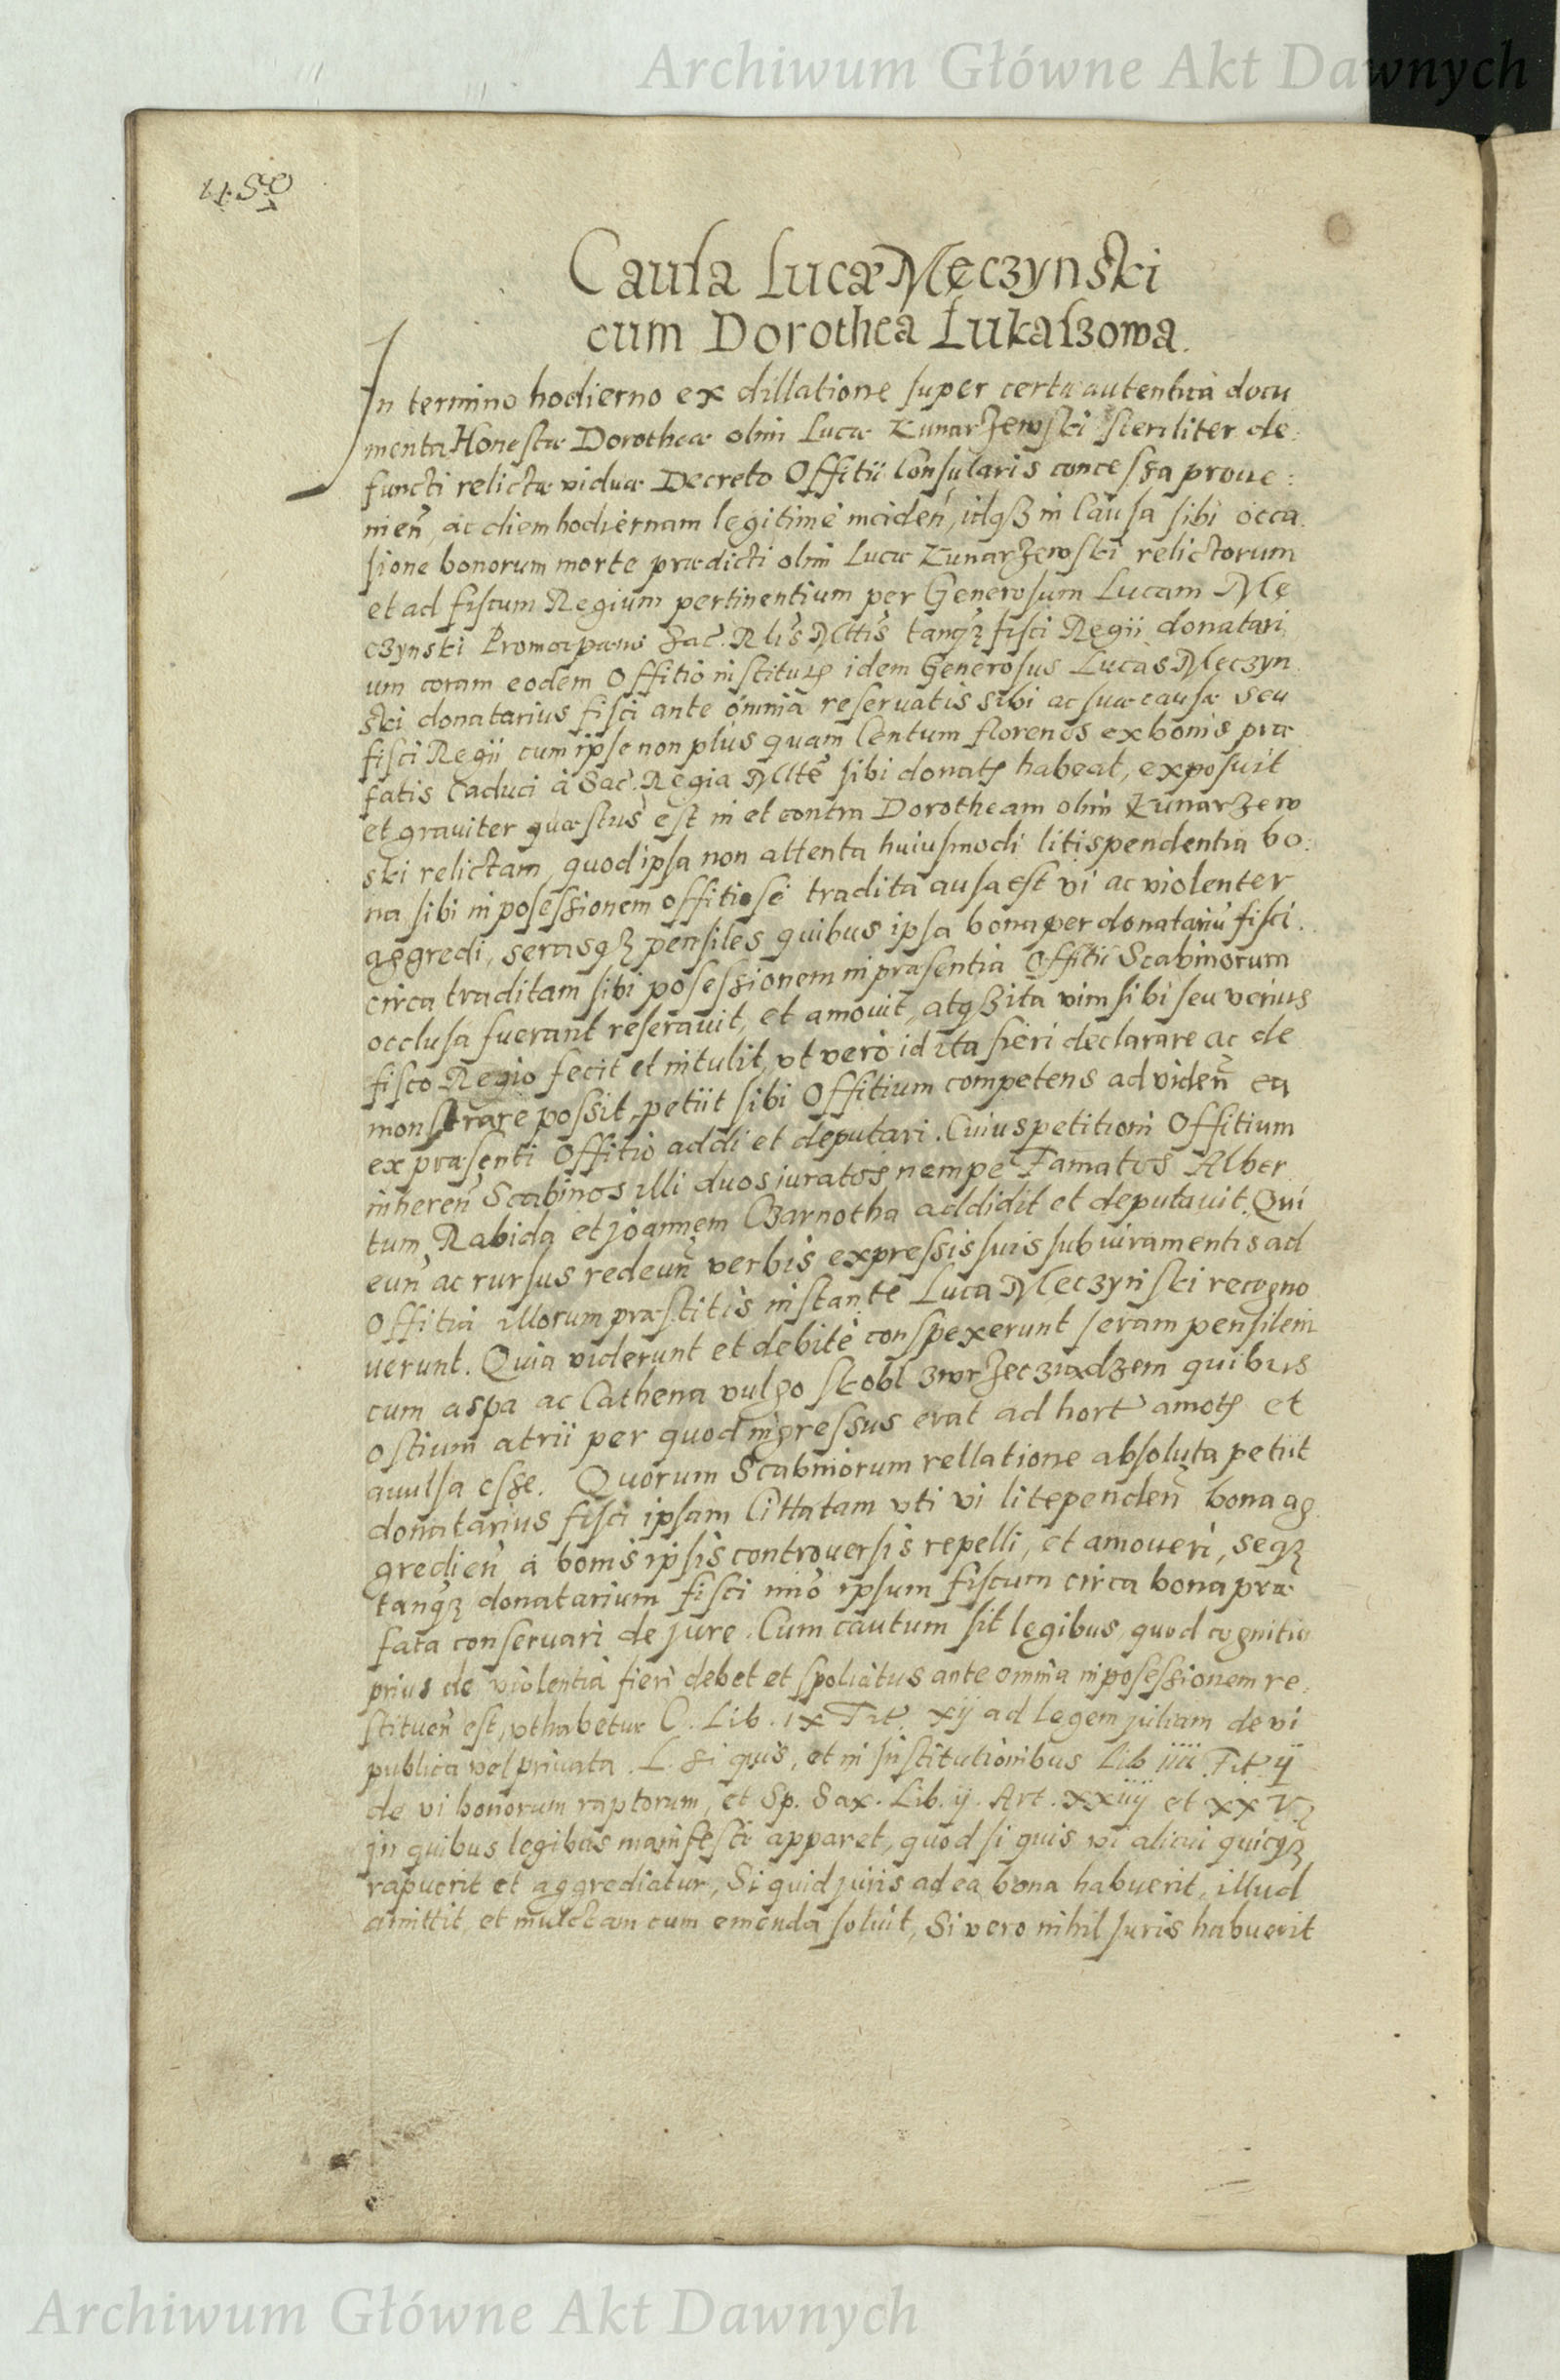 Archiwum Główne Akt Dawnych
Causa Lucæ Męczynski
cum Dorothea Łukaſzowa.
In termino hodierno ex dillatione ſuper certa autentica docu
menta Honestæ Dorotheæ olim Lucæ KunarZewski steriliter de:
functi relictæ viduæ Decreto Offitii Conſularis conceſsa proue:
nien̄, ac diem hodiernam legitimè inciden̄, idq₃ in Cauſa sibi occa.
ſione bonorum morte prædicti olim Lucæ KunarZewski relictorum
et ad fiſcum Regium pertinentium per Generoſum Lucam Mę
czynski Sac. R. Mttis tanq₃ fiſci Regii donatari
um coram eodem Offitio inſtitu idem Generoſus Lucas Męczyn
ski donatarius fiſci ante omnia reſeruatis sibi ac ſuæ cauſæ seu
fiſci Regii cum ipſe non plus quam Centum florenos ex bonis præ
fatis Caduci à Sac. Regia Mtte ſibi donat habeat, expoſuit
et grauiter quæſtus est in et contra Dorotheam olim KunarZew
ski relictam, quod ipſa non attenta huiuſmodi litispendentia bo:
na ſibi in poseſsionem offitiose tradita auſa est vi ac violenter
aggredi, serasq₃ penſiles quibus ipſa bona per donatariū fiſci.
circa traditam ſibi poseſsionem in præsentia Offitii Scabinorum
occluſa fuerant reſerauit, et amouit, atq₃ ita vim ſibi seu verius
fiſco Regio fecit et intulit, vt verò id ita fieri declarare ac de
monſtrare poſsit, petiit ſibi Offitium competens ad viden̄ ea
ex præſenti Offitio addi et deputari. Cuius petitioni Offitium
inheren̄ Scabinos illi duos iuratos nempe Famatos Alber
tum Rabida et Joannem Czarnotha addidit et deputauit. Qui
eun̄ ac rurſus redeun̄ verbis expreſsis ſuis ſub iuramentis ad
Offitia illorum præſtitis inſtante Luca Męczynſki recogno
uerunt. Quia viderunt et debitè conſpexerunt ſeram penſilem
cum aspa ac Cathena vulgo skobl zwrZecziadzem quibus
ostium atrii per quod ingreſsus erat ad hort amot et
auulſa eſse. Quorum Scabinorum rellatione absoluta petiit
donatarius fiſci ipſam Cittatam vti vi lite penden̄ bona ag
gredien̄ à bonis ipſis controuerſis repelli, et amoueri, seq₃
tanq₃ donatarium fiſci imò ipſum fiſcum circa bona præ
fata conſeruari de jure. Cum cautum ſit legibus, quod cognitio
prius de violentia fieri debet et ſpoliatus ante omnia in poseſsionem re,
ſtituen̄ est, vt habetur C. Lib. ix Tit. xij ad legem juliam de vi
publica vel priuata. L. si quis, et in Inſtitutionibus Lib iiii Tit ij
de vi bonorum raptorum, et Sp. Sax. Lib. ij. Art. xxiiij et xxv.
jn quibus legibus manifeſte apparet, quod ſi quis vi alicui quicq₃
rapuerit et aggrediatur, Si quid juris ad ea bona habuerit, illud
amittit, et mulctam cum emenda ſoluit, Si vero nihil Juris habuerit
Archiwum Główne Akt Dawnych